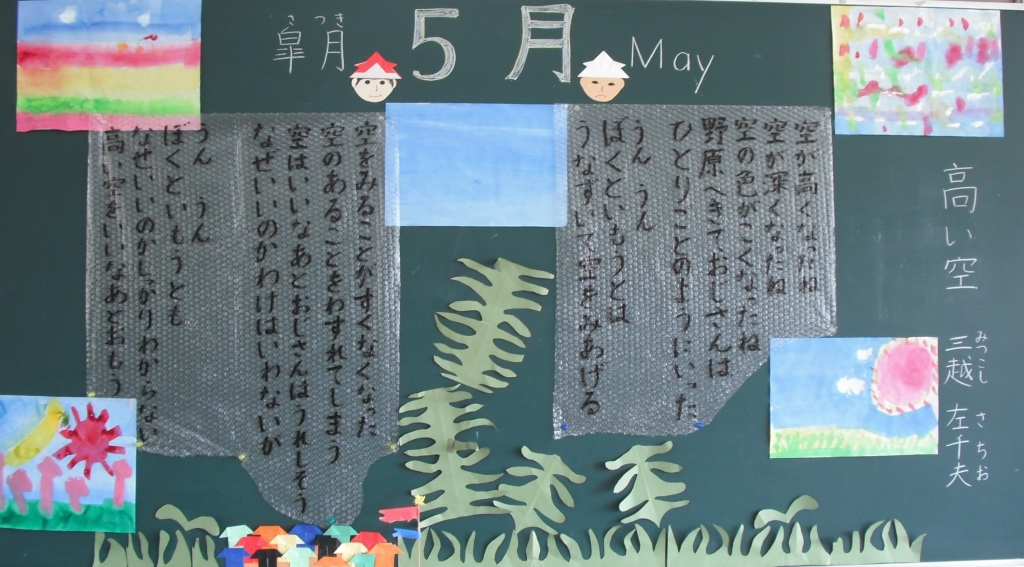 さ つき
皐月
5月
May
高い空
三越 左千夫
みつこし さちお
空が高くなったね
空が深くなったね
空の色がこくなったね
野原へきておじさんは
ひとりごとのようにいった
うん うん
ぼくといもうとは
うなずいて空をみあげる
空をみることがすくなくなった
空のあることをわすれてしまう
空はいいなあとおじさんはうれしそう
なぜいいのかわけはいわないが
うん うん
ぼくといもうとも
なぜいいのかしっかりわからない
高い空をいいなあとおもう